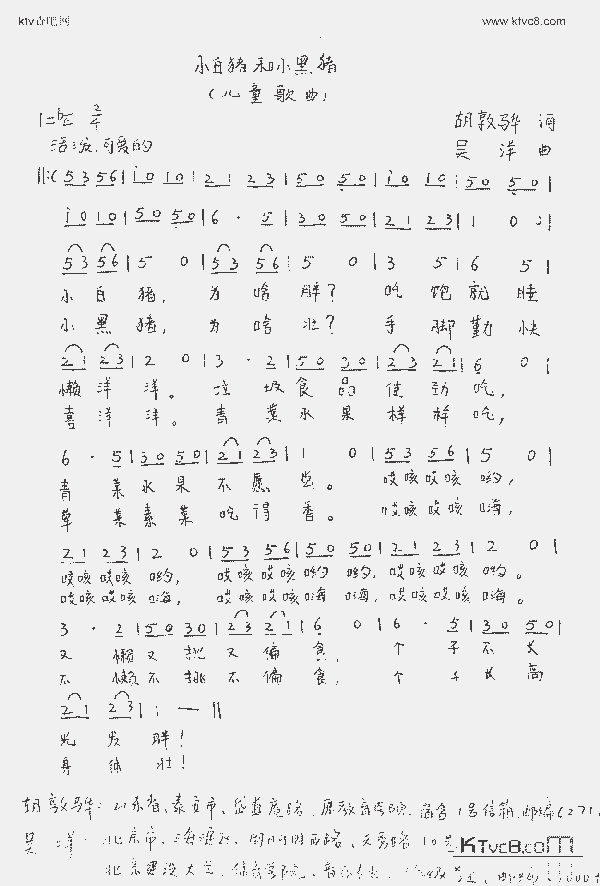 ktv吉吧网 www.ktvc8.com
小白猪和小黑猪
（儿童歌曲）
1=bE 2/4 胡敦骅 词
活泼、可爱的 吴洋 曲
‖:( 5 3 5 6 | i 0 i 0 | 2 1 2 3 | 5 0 5 0 | i 0 i 0 | 5 0 5 0 |
i 0 i 0 | 5 0 5 0 | 6 · 5 | 3 0 5 0 | 2 1 2 3 | 1 0 :|
5 3 5 6 | 5 0 | 5 3 5 6 | 5 0 | 3 5 | 6 5 |
小白猪， 为啥胖？ 吃饱就睡
小黑猪， 为啥壮？ 手脚勤快
2 1 2 3 | 2 0 | 3 · 2 | 5 0 3 0 | 2 3 2 1 | 6 0 |
懒洋洋。 垃圾食品使劲吃，
喜洋洋。 青菜水果样样吃，
6 · 5 | 3 0 5 0 | 2 1 2 3 | 1 0 | 5 3 5 6 | 5 0 |
青菜水果不愿尝。 哎咳哎咳哟，
荤菜素菜吃得香。 哎咳哎咳嗨，
2 1 2 3 | 2 0 | 5 3 5 6 | 5 0 5 0 | 2 1 2 3 | 2 0 |
哎咳哎咳哟， 哎咳哎咳哟哟，哎咳哎咳哟。
哎咳哎咳嗨， 哎咳哎咳嗨嗨，哎咳哎咳嗨。
3 · 2 | 5 0 3 0 | 2 3 2 1 | 6 0 | 6 · 5 | 3 0 5 0 |
又懒又挑又偏食， 个子不长
不懒不挑不偏食， 个子长高
2 1 2 3 | 1 — ‖
光发胖！
身体壮！
胡敦骅：山东省、泰安市、 宿舍1号信箱，邮编(271
吴洋：北京市、海淀区、
北京
KTvc8.com